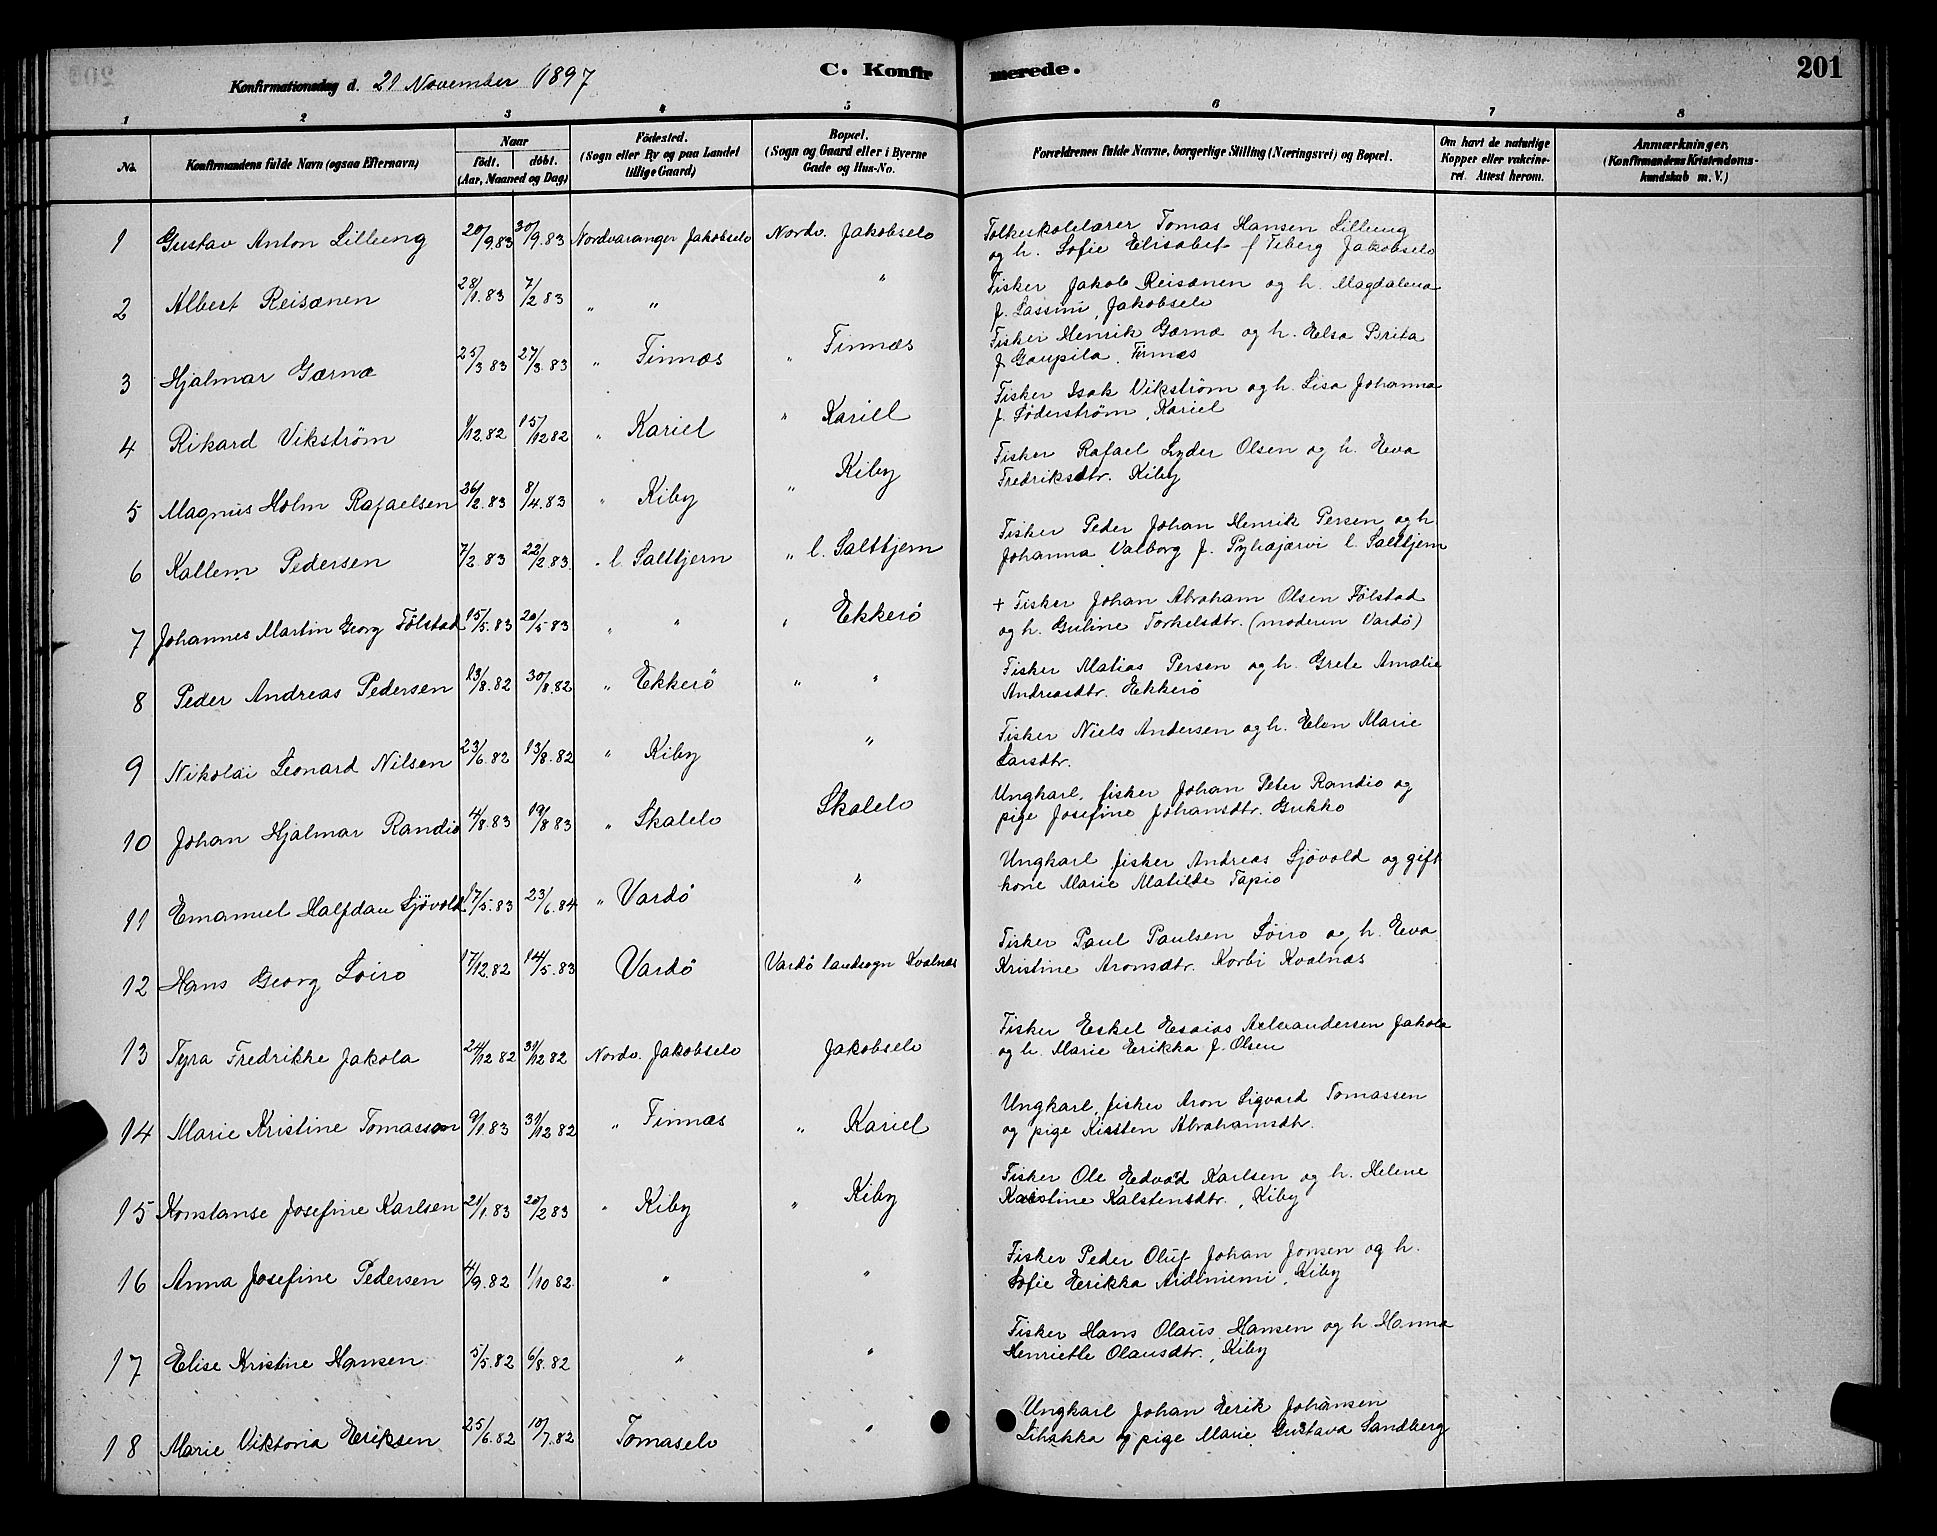 Konfirmationsdag d. 21 November 1897
C. Konfirmerede.
201
1 2 3 4 5 6 7 8
No.
Konfirmandens fulde Navn (ogsaa Efternavn)
Naar
födt. döbt.
(Aar, Maaned og Dag)
Födested.
(Sogn eller By og paa Landet
tillige Gaard)
Bopæl.
(Sogn og Gaard eller i Byerne
Gade og Hus-No.
Forældrenes fulde Navne, borgerlige Stilling (Næringsvei) og Bopæl.
Om havt de naturlige
Kopper eller vakcine-
ret. Attest herom.
Anmærkninger,
(Konfirmandens Kristendoms-
kundskab m. V.)
1 Gustav Anton Lilleeng 20/9.83 30/9.83 Nordvaranger Jakobselv Nordv. Jakobselv Folkeskolelærer Tomas Hansen Lilleeng
og h. Sofie Elisabet f Feberg Jakobselv
2 Albert Reisænen 28/1.83 7/2 83 " " " Fisker Jakob Reisænen og h. Magdalena
f. Lassini, Jakobselv
3 Hjalmar Gærnæ 25/3 83 27/3.83 " Finnæs " Finnæs Fisker Henrik Gærnæ og h. Elsa Brita
f Gaupila, Finnæs
4 Rikard Vikström 1/12.82 15/12 82 " Kariel " Kariel Fisker Isak Vikström og h. Lisa Johanna
f. Söderström, Kariel
5 Magnus Holm Rafaelsen 26/2.83 8/4.83 " Kiby " Kiby Fisker Rafael Lyder Olsen og h. Eva
Fredriksdtr. Kiby
6 Kallem Pedersen 7/2.83 22/2.83 " l. Saltbjern " l. Saltbjern Fisker Peder Johan Henrik Persen og h.
Johanna Valborg f. Pyhæjærvi l. Saltbjern
7 Johannes Martin Georg Fölstad 15/5.83 20/5 83 " " " Ekkerö + Fisker Johan Abraham Olsen Fölstad
og h. Guline Torkelsdtr. (moderen Vardö)
8 Peder Andreas Pedersen 13/8.82 30/8.82 " Ekkerö " " Fisker Matias Persen og h. Grete Amalie
Andreasdtr. Ekkerö
9 Nikolai Leonard Nilsen 23/6.82 13/8.82 " Kiby " Fisker Niels Andersen og h. Elen Marie
Larsdtr.
10 Johan Hjalmar Randio 4/8.83 19/8 83 " Skalelv Skalelv Ungkarl, fisker Johan Peter Randio og
pige Josefine Johansdtr. Gukko
11 Emanuel Halfdan Sjövold 17/5.83 23/6.84 " Vardö " Ungkarl fisker Andreas Sjövold og gift
kone Marie Matilde Tapio
12 Hans Georg Soiro 17/12.82 14/5.83 Vardö Vardö landsogn Kvalnæs Fisker Paul Paulsen Soiro og h. Eva
Kristine Aronsdtr. Korbi Kvalnæs
13 Tyra Fredrikke Jakola 24/12 82 31/12 82 Nordv. Jakobselv Jakobselv Fisker Eskel Esaias Alexandersen Jakola
og h. Marie Erikka f. Olsen
14 Marie Kristine Tomassen 9/1.83 31/12 82 " Finnæs " Kariel Ungkarl, fisker Aron Sigvard Tomassen
og pige Kirsten Abrahamsdtr.
15 Konstanse Josefine Karlsen 21/1.83 20/2 83 " Kiby " Kiby Fisker Ole Edvard Karlsen og h. Helene
Kristine Kalstensdtr., Kiby
16 Anna Josefine Pedersen 4/9.82 1/10 82 " " Fisker Peder Oluf Johan Jonsen og h.
Sofie Erikka Aidiniemi, Kiby
17 Elise Kristine Hansen 5/5.82 6/8.82 " " Fisker Hans Olaus Hansen og h Hanna
Henriette Olausdtr., Kiby
18 Marie Viktoria Eriksen 25/6.82 10/7.82 Tomaselv " Ungkarl Johan Erik Johansen
Lihakka og pige Marie Gustava Sandberg